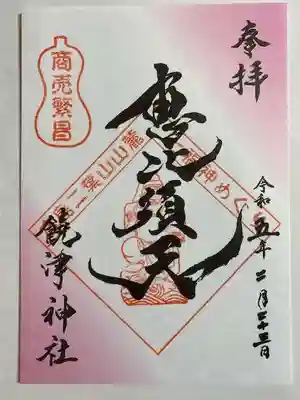 奉拝
商売繁昌
二葉山山麓
七福神めぐり
恵比須天
令和五年二月二十三日
饒津神社